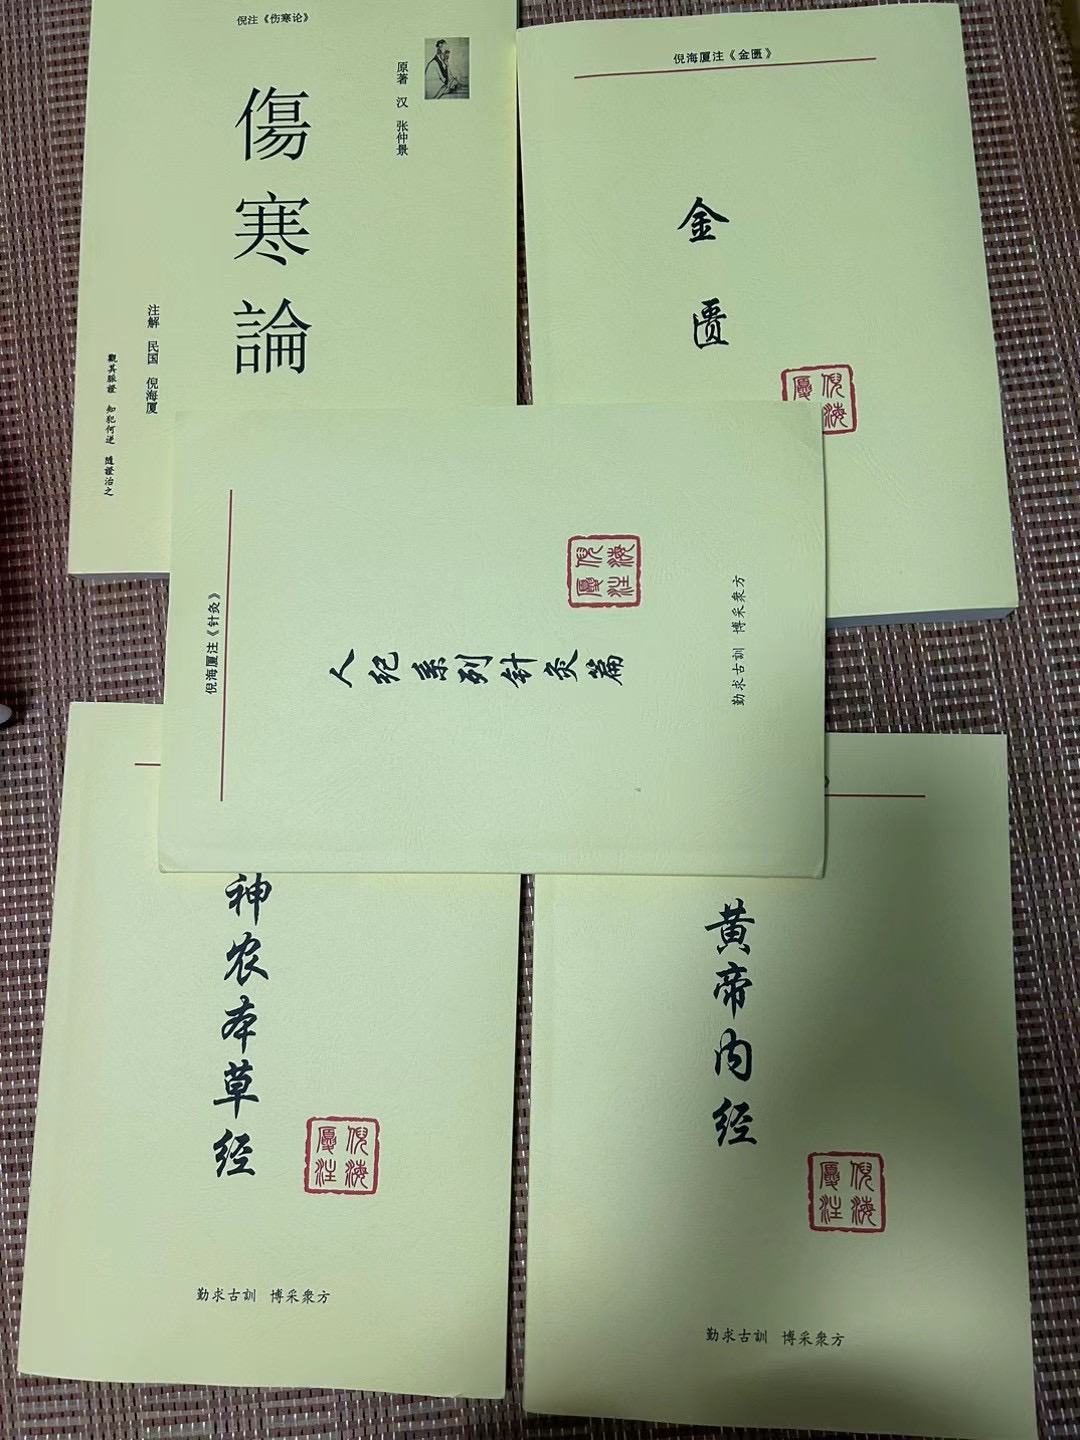 倪注《伤寒论》
原著 汉 张仲景
傷寒論
注解 民国 倪海厦
觀其脈證 知犯何逆 隨證治之
倪海厦注《金匮》
金匮
倪海
厦
倪海厦注《针灸》
人纪系列针灸篇
倪海
厦注
勤求古訓 博采衆方
神农本草经
倪海
厦注
勤求古訓 博采衆方
》
黄帝内经
倪海
厦注
勤求古訓 博采衆方